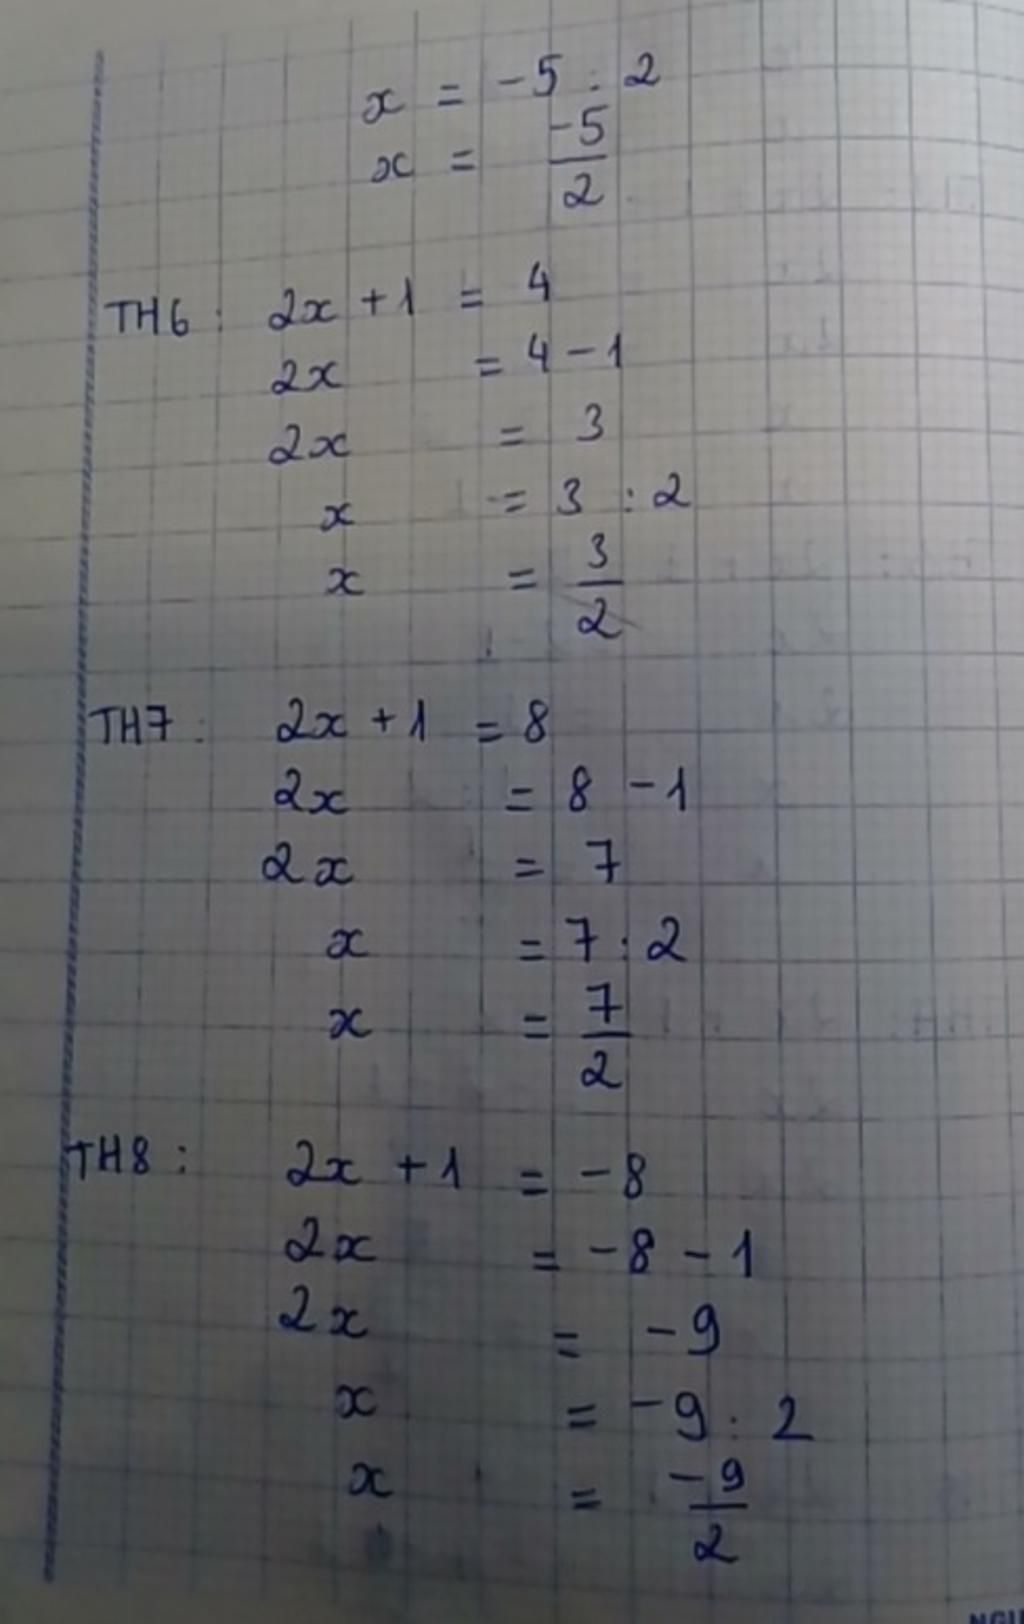 x = -5 : 2
x = -5/2
TH6 : 2x + 1 = 4
2x = 4 - 1
2x = 3
x = 3 : 2
x = 3/2
TH7 : 2x + 1 = 8
2x = 8 - 1
2x = 7
x = 7 : 2
x = 7/2
TH8 : 2x + 1 = -8
2x = -8 - 1
2x = -9
x = -9 : 2
x = -9/2